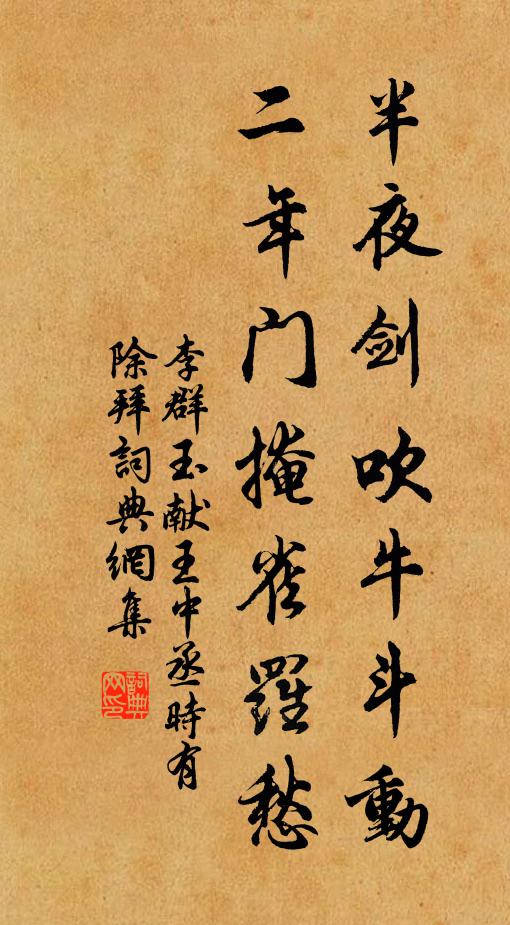 半夜剑吹牛斗動
二年门掩雀羅愁
李群玉献王中丞時有
除拜詞典網集
詞典网印